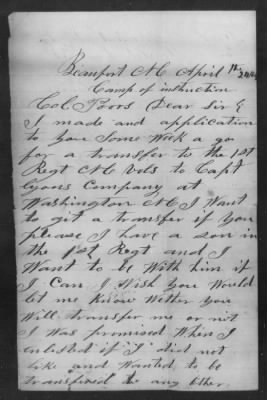 Beaufort N C April
Camp of instruction
Col Poors Dear Sir
I made and application
to you Some Week a go
for a transfer to the 1st
Regt N C Vols to Capt
Lyons Company at
Washington N C I Want
to git a transfer if you
please I have a son in
the 1st Regt and I
Want to be With him if
I Can I Wish you Would
let me Know Wether you
Will transfer me or not
I was promised When I
enlisted if I did not
like and Wanted to be
transfired to any other